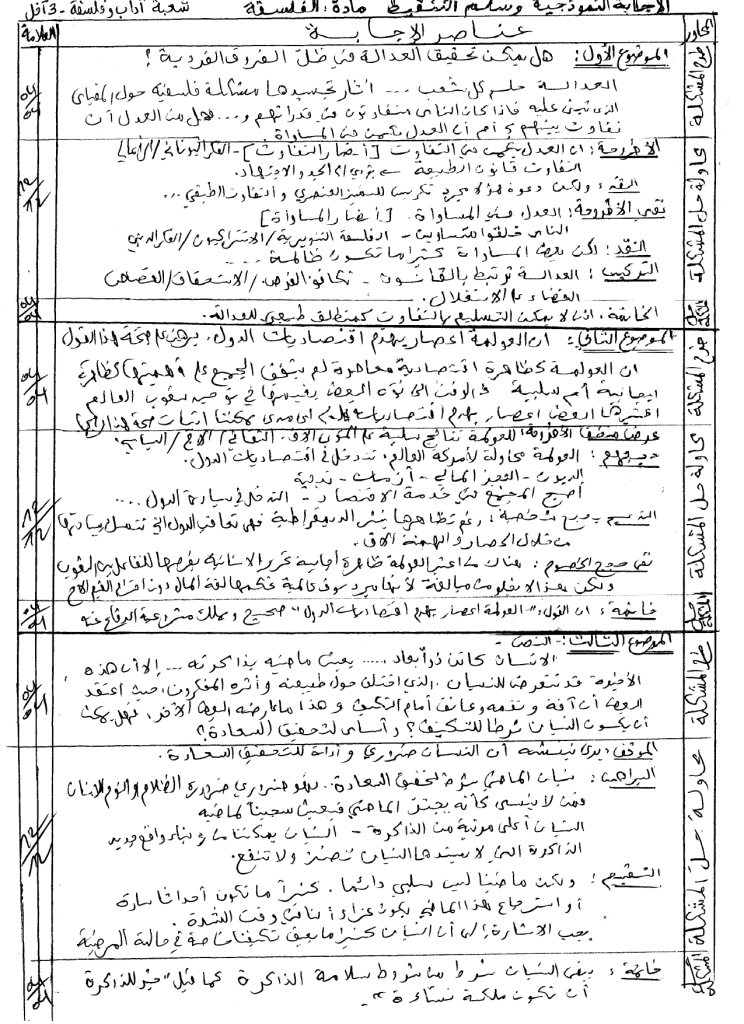 الإجابة النموذجية وسلم التنقيط مادة: الفلسفة شعبة آداب وفلسفة - 3
المحاور عناصر الإجابة العلامة
طرح المشكلة
الموضوع الأول: هل يمكن تحقيق العدالة في ظل الفروق الفردية؟
العدالة حلم كل شعب ... أثار تجسيدها مشكلة فلسفية حول المقياس
الذي تبنى عليه فإذا كان الناس متفاوتون في قدراتهم و... فهل من العدل أن
نفاوت بينهم؟ أم أن العدل يكمن في المساواة
04/04
محاولة حل المشكلة
الأطروحة: إن العدل يكمن في التفاوت [أنصار التفاوت] - الفكر اليوناني/الرأسمالي
التفاوت قانون الطبيعة يؤدي إلى الجد والاجتهاد.
النقد: ولكن دعوة هؤلاء مجرد تكريس للتمييز العنصري والتفاوت الطبقي...
نقيض الأطروحة: العدل في المساواة. [أنصار المساواة]
الناس خلقوا متساويين - الفلسفة التنويرية/الاشتراكيون/الفكر الديني
النقد: لكن بعض المساواة كثيرا ما تكون ظالمة...
التركيب: العدالة ترتبط بالقانون - تكافؤ الفرص/الاستحقاق/القصاص
القضاء على الاستغلال.
12/12
حل المشكلة
الخاتمة: إذن لا يمكن التسليم بالتفاوت كمنطلق طبيعي للعدالة.
04/04
طرح المشكلة
الموضوع الثاني: إن العولمة إعصار يهدم اقتصاديات الدول. برهن على صحة هذا القول
إن العولمة كظاهرة اقتصادية معاصرة لم يتفق الجميع على قيمتها كظاهرة
إيجابية أم سلبية في الوقت الذي نوه البعض بقيمتها في توحيد شعوب العالم
اعتبرها البعض إعصار يهدم اقتصاديات فإلى أي مدى يمكننا إثبات صحة هذا الرأي؟
04/04
محاولة حل المشكلة
عرض منطق الأطروحة: للعولمة نتائج سلبية على المستوى الاق. الثقافي/الاج/السياسي.
حججهم: العولمة محاولة لأمركة العالم. تتدخل في اقتصاديات الدول.
الديون - العجز المالي - أزمات - تبعية
أصبح المجتمع في خدمة الاقتصاد - التدخل في سيادة الدول...
التدعيم بحجج شخصية: رغم تظاهرها بنشر الديمقراطية فهي تعاقب الدول التي تتمسك بسيادتها
من خلال الحصار والهيمنة الاق.
نقد حجج الخصوم: هناك من اعتبر العولمة ظاهرة إيجابية تحرر الإنسانية بفرصها للتفاعل بين الشعوب
ولكن هذا لا يخلو من مبالغة لأنها مجرد سوق عالمية تحكمها لغة المال دون احترام القيم الاج
12/12
حل المشكلة
خاتمة: إن القول: "العولمة إعصار يهدم اقتصاديات الدول" صحيح ويملك مشروعية الدفاع عنه
04/04
طرح المشكلة
الموضوع الثالث: - النص -
الإنسان كائن ذو أبعاد ..... يعيش ماضيه بذاكرته ... إلا أن هذه
الأخيرة قد تتعرض للنسيان. الذي اختلف حول طبيعته وأثره المفكرون، حيث اعتقد
البعض أن آفة ونقمة وعائق أمام التكيف وهذا ما عارضه البعض الآخر، فهل يمكن
أن يكون النسيان شرطا للتكيف؟ وأساس لتحقيق السعادة؟
04/04
محاولة حل المشكلة
الموقف: يرى نيتشه أن النسيان ضروري وأداة لتحقيق السعادة.
البراهين: نسيان الماضي شرط لتحقيق السعادة.. فهو ضروري ضرورة الظلام والنوم للإنسان
فمن لا ينسى كأنه يجتر الماضي فيعيش سجينا لماضيه
النسيان أعلى مرتبة من الذاكرة - النسيان يمكننا من بناء واقع جديد
الذاكرة التي لا يسندها النسيان تضر ولا تنفع.
التقييم: ولكن ماضينا ليس سلبي دائما. كثيرا ما تكون أحداثا سارة
أو استرجاع هذا الماضي يكون عزاء لنا في وقت الشدة.
يجب الإشارة إلى أن النسيان كثيرا ما يعيق تكيفنا خاصة في حالته المرضية
12/12
حل المشكلة
خاتمة: يبقى النسيان شرط من شروط سلامة الذاكرة كما قيل "خير للذاكرة
أن تكون ملكة نساءة".
04/04